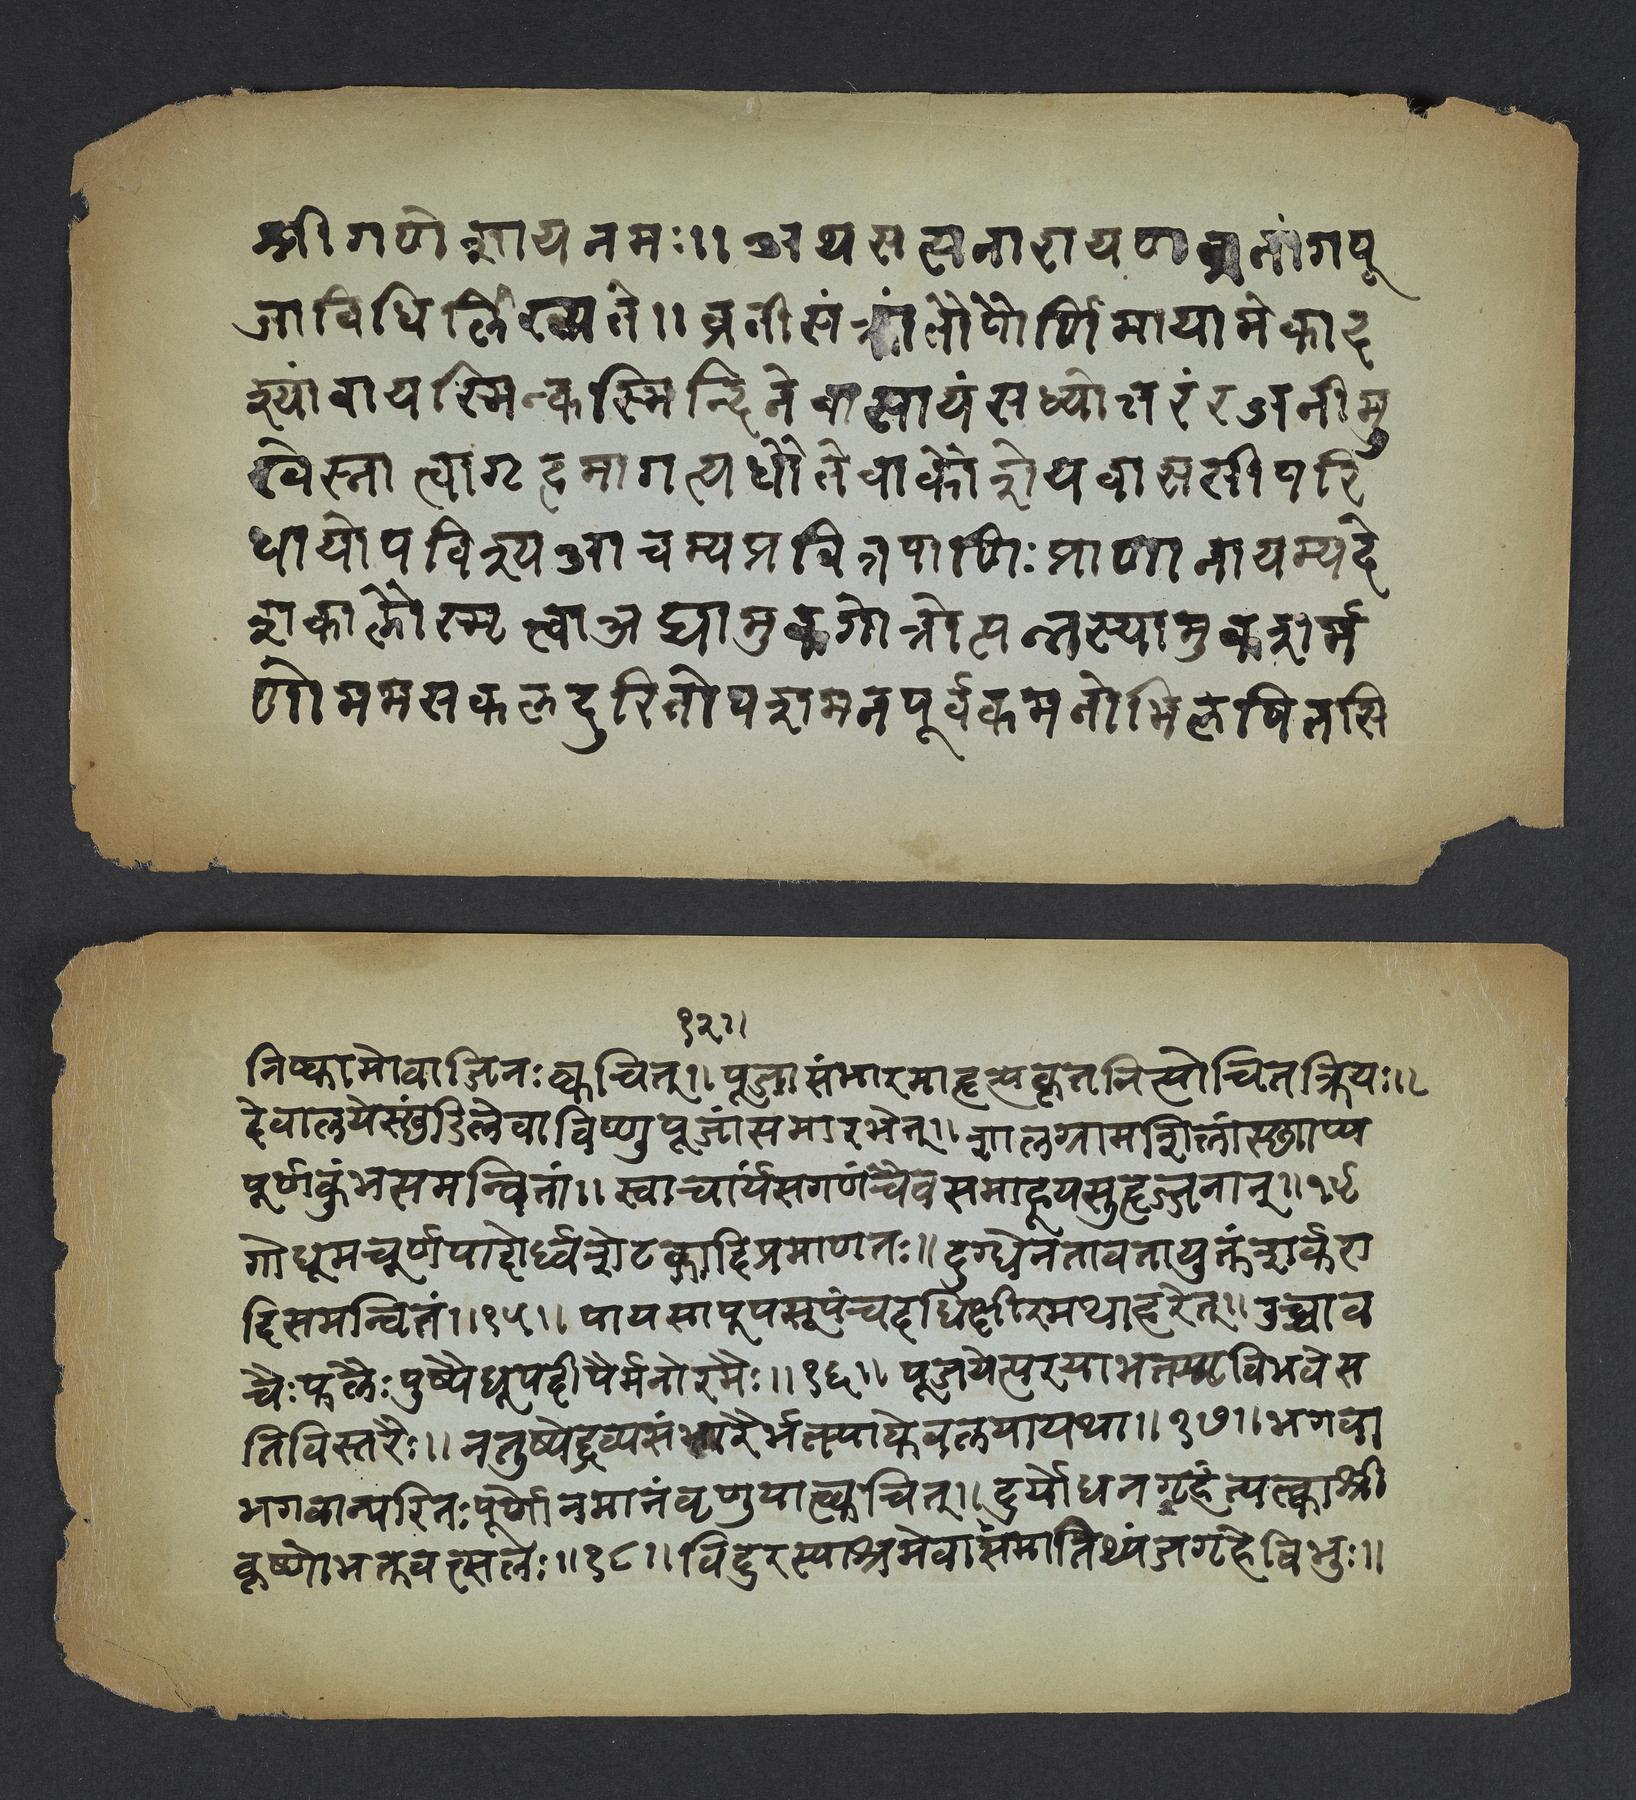 श्रीगणेशायनमः॥ अथसत्यनारायणव्रतांगपू
जाविधिर्लिख्यते॥ व्रतीसंक्रांतौपौर्णिमायामेकाद
श्यांवायस्मिन्कस्मिन्दिनेवासायंसध्योत्तरंरजनीमु
खेस्नात्वागृहमागत्यधौतेचाकौशेयवाससीपरि
धायोपविश्यआचम्यप्रवित्रपाणिःप्राणानायम्यदे
शकालौस्मृत्वाअद्यामुकगोत्रोत्पन्नस्यामुकशर्म
णोममसकलदुरितोपशमनपूर्वकमनोभिलषितसि
१२॥
निष्कामोवाजिनःक्वचित्॥ पूजासंभारमाहृत्यकृतनित्योचितक्रियः॥
देवालयेस्थंडिलेवाविष्णुपूजांसमारभेत्॥ शालग्रामशिलांस्थाप्य
पूर्णकुंभसमन्वितां॥ स्वाचार्यंसगणंचैवसमाहूयसुहृज्जनान्॥१४
गोधूमचूर्णपादोर्ध्वशेटकादिप्रमाणतः॥ दुग्धेनतावतायुक्तंशर्करा
दिसमन्वितं॥१५॥ पायसापूपसूपंचदधिक्षीरमथाहरेत्॥ उच्चाव
चैःफलैःपुष्पैधूपदीपैर्मनोरमैः॥१६॥ पूजयेत्परयाभक्त्याविभवेस
तिविस्तरैः॥ नतुष्येद्द्रव्यसंभारैर्भक्त्याकेवलयायथा॥१७॥ भगवा
भगवान्परितःपूर्णोनमानंवृणुयात्क्वचित्॥ दुर्योधनगृहंत्यक्त्वाश्री
कृष्णोभक्तवत्सलः॥१८॥ विदुरस्याश्रमेवासंमातिथ्यंजगृहेविभुः॥